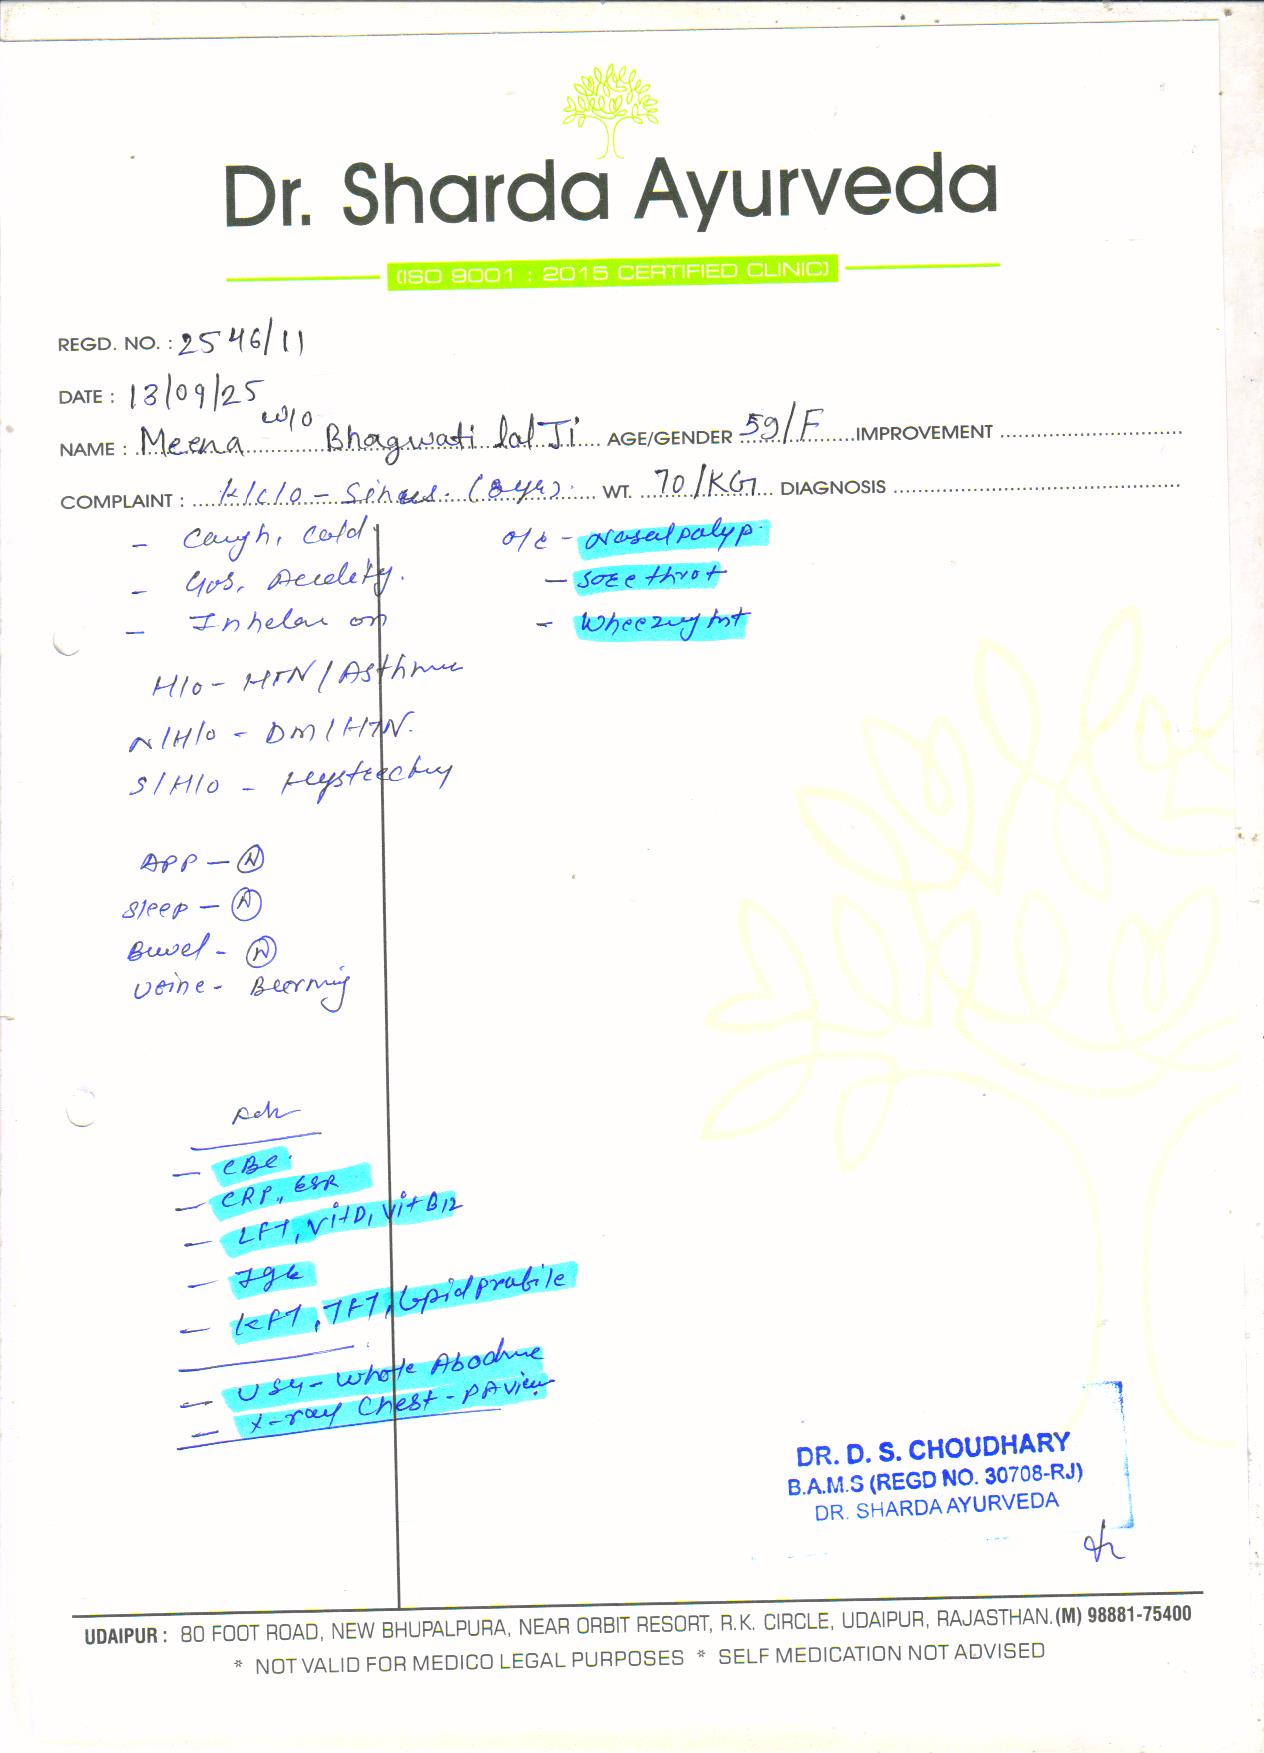 Dr. Sharda Ayurveda
(ISO 9001 : 2015 CERTIFIED CLINIC)
REGD. NO. : 2546/11
DATE : 13/09/25
NAME : Meena w/o Bhagwati lal Ji AGE/GENDER 59/F IMPROVEMENT
COMPLAINT : K/C/O - Sinus. (8yrs). WT. 70/KG DIAGNOSIS
- Caugh, Cold
- Gas, Acidity.
- Inhelar on
o/e - Nasal polyp.
- Sore throt
- Wheezing
H/o - HTN / Asthma
N/H/o - DM / HTN.
S/H/o -
APP - N
Sleep - N
Bowel - N
Urine - Burning
Adv
- CBC.
- CRP, ESR
- LFT, Vit D, Vit B12
- IgE
- KFT, TFT, Lipid profile
- USG - Whole Abodme
- X-ray Chest - PA view
DR. D. S. CHOUDHARY
B.A.M.S (REGD NO. 30708-RJ)
DR. SHARDA AYURVEDA
UDAIPUR : 80 FOOT ROAD, NEW BHUPALPURA, NEAR ORBIT RESORT, R.K. CIRCLE, UDAIPUR, RAJASTHAN. (M) 98881-75400
* NOT VALID FOR MEDICO LEGAL PURPOSES * SELF MEDICATION NOT ADVISED